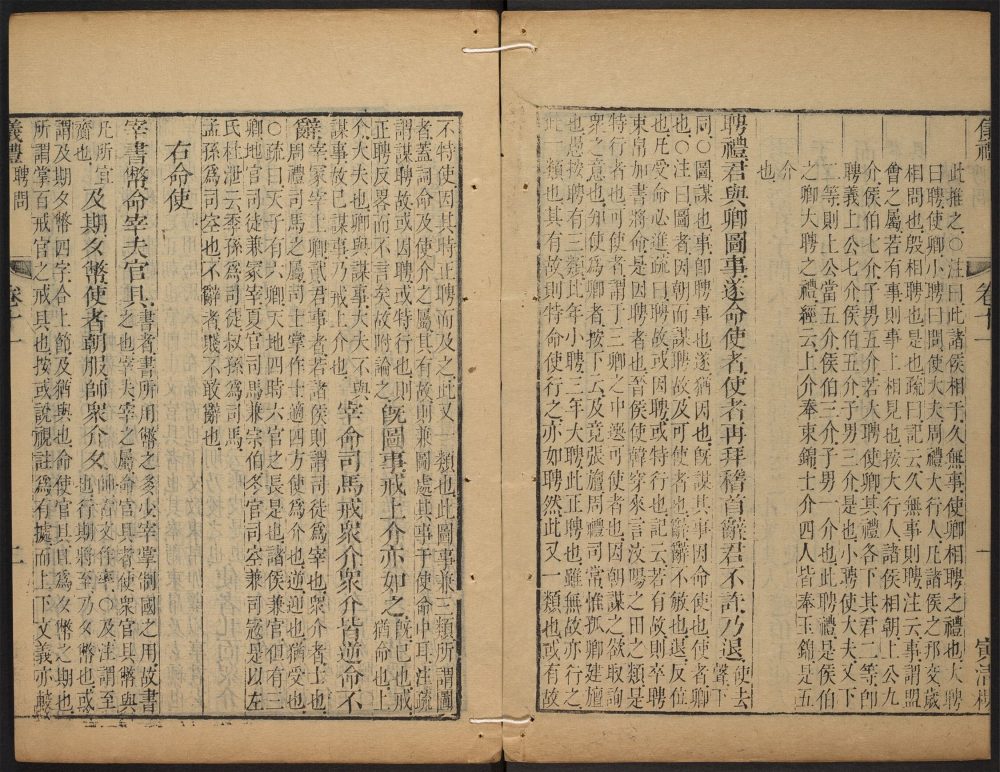 儀禮 卷十一 一 寅清樓
此推之○注曰此諸侯相于久無事使卿相聘之禮也大聘
曰聘使卿小聘曰問使大夫周禮大行人凡諸侯之邦交歲
相問也殷相聘也是也疏曰記云久無事則聘注云事謂盟
會之屬若有事則事上相見也按大行人諸侯相朝上公九
介侯伯七介子男五介若大聘使卿其禮各下其君二等卽
聘義上公七介侯伯五介子男三介是也小聘使大夫又下
二等則上公當五介侯伯三介子男一介也此聘禮是侯伯
之卿大聘之禮經云上介奉束錦士介四人皆奉玉錦是五
介
也
聘禮君與卿圖事遂命使者使者再拜稽首辭君不許乃退使去聲下
同○圖謀也事卽聘事也遂猶因也旣謀其事因命使也使者卿
也○注曰圖者因朝而謀聘故及可使者也辭辭不敏也退反位
也凡受命必進疏曰聘故或因聘或特行也記云若有故則卒聘
束帛加書將命是也晉侯使韓穿來言汶陽之田之類是
特行者也可使者謂于三卿之中選可使者也因朝謀之欲取詢
衆之意也知使爲卿者按下云及竟張旜周禮司常惟孤卿建旜
也愚按聘有三類比年小聘三年大聘此正聘也雖無故亦行之
此一類也其有故則特命使行之亦如聘然此又一類也或有故
不特使因其時正聘而及之此又一類也此圖事兼三類所謂圖
者蓋詞命及使介之屬其有故則兼圖處其事于使命中耳注疏
謂謀聘故或因聘或特行也則
正聘反畧而不言矣故附論之旣圖事戒上介亦如之旣已也戒猶命也上
介大夫也卿與謀事大夫不與
謀事故已謀事乃戒上介也宰命司馬戒衆介衆介皆逆命不
辭宰冢宰上卿貳君事者若諸侯則謂司徒爲宰也衆介者士也
周禮司馬之屬司士掌作士適四方使爲介也逆迎也猶受也
○疏曰天子有六卿天地四時六官之長是也諸侯兼官但有三
卿地官司徒兼冢宰夏官司馬兼宗伯冬官司空兼司寇是以左
氏杜泄云季孫爲司徒叔孫爲司馬
孟孫爲司空也不辭者賤不敢辭也
右命使
宰書幣命宰夫官具書者書所用幣之多少宰掌制國之用故書
之也宰夫宰之屬命官具者使衆官具其幣與
凡所宜
齎也及期夕幣使者朝服帥衆介夕師音文作率○及注謂至
也行期將至乃夕幣也或
謂及期夕幣四字合上節及猶與也命使官具且爲夕幣之期也
所謂掌百戒官之戒具也按或說視註爲有據而上下文義亦較
儀禮 聘問 卷十一 二